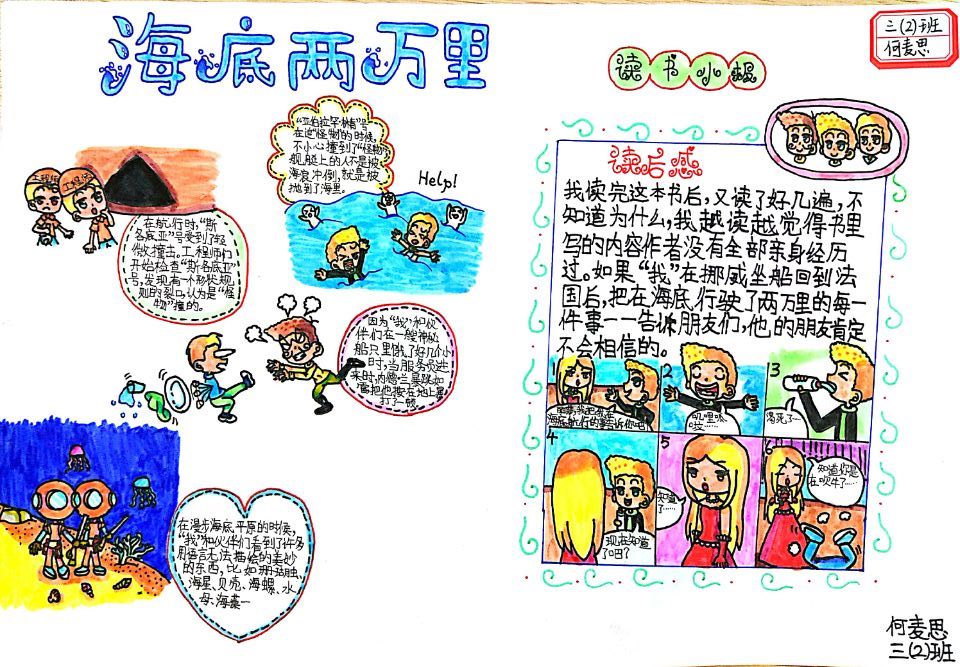 海底两万里
读书小报
三(2)班
何麦思
"亚伯拉罕·林肯"号
在追"怪物"的时候,
不小心撞到了"怪物",
舰艇上的人不是被
海浪冲倒,就是被
抛到了海里。
Help!
工程师
工程师
在航行时,"斯
各底亚"号受到了轻
微撞击。工程师们
开始检查"斯各底亚"
号,发现有一个形状规
则的裂口,认为是"怪
物"撞的。
因为"我"和伙
伴们在一艘神秘
船只里饿了好几个小
时,当服务员进
来时,内德·兰暴跳如
雷把他按在地上暴
打了一顿。
在漫步海底平原的时候,
"我"和伙伴们看到了许多
用语言无法描绘的美妙
的东西,比如珊瑚触、
海星、贝壳、海螺、水
母、海藻……
读后感
我读完这本书后,又读了好几遍,不
知道为什么,我越读越觉得书里
写的内容作者没有全部亲身经历
过。如果"我"在挪威坐船回到法
国后,把在海底行驶了两万里的每一
件事一一告诉朋友们,他的朋友肯定
不会相信的。
1
海底他们的事告诉你吧
2
叽里呱
啦……
3
渴死了…
4
现在知道
了吧?
5
知道
了……
6
知道你是
在吹牛了……
何麦思
三(2)班